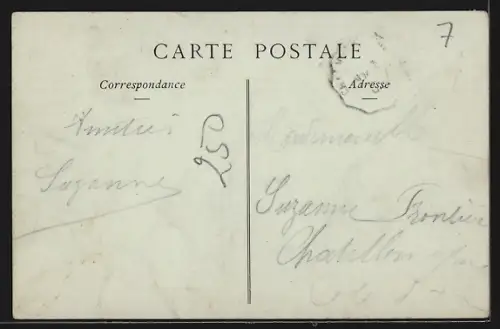 7
CARTE POSTALE
Correspondance
Adresse
Amitiés
Suzanne
250
Mademoiselle
Suzanne Frontier
Chatillon